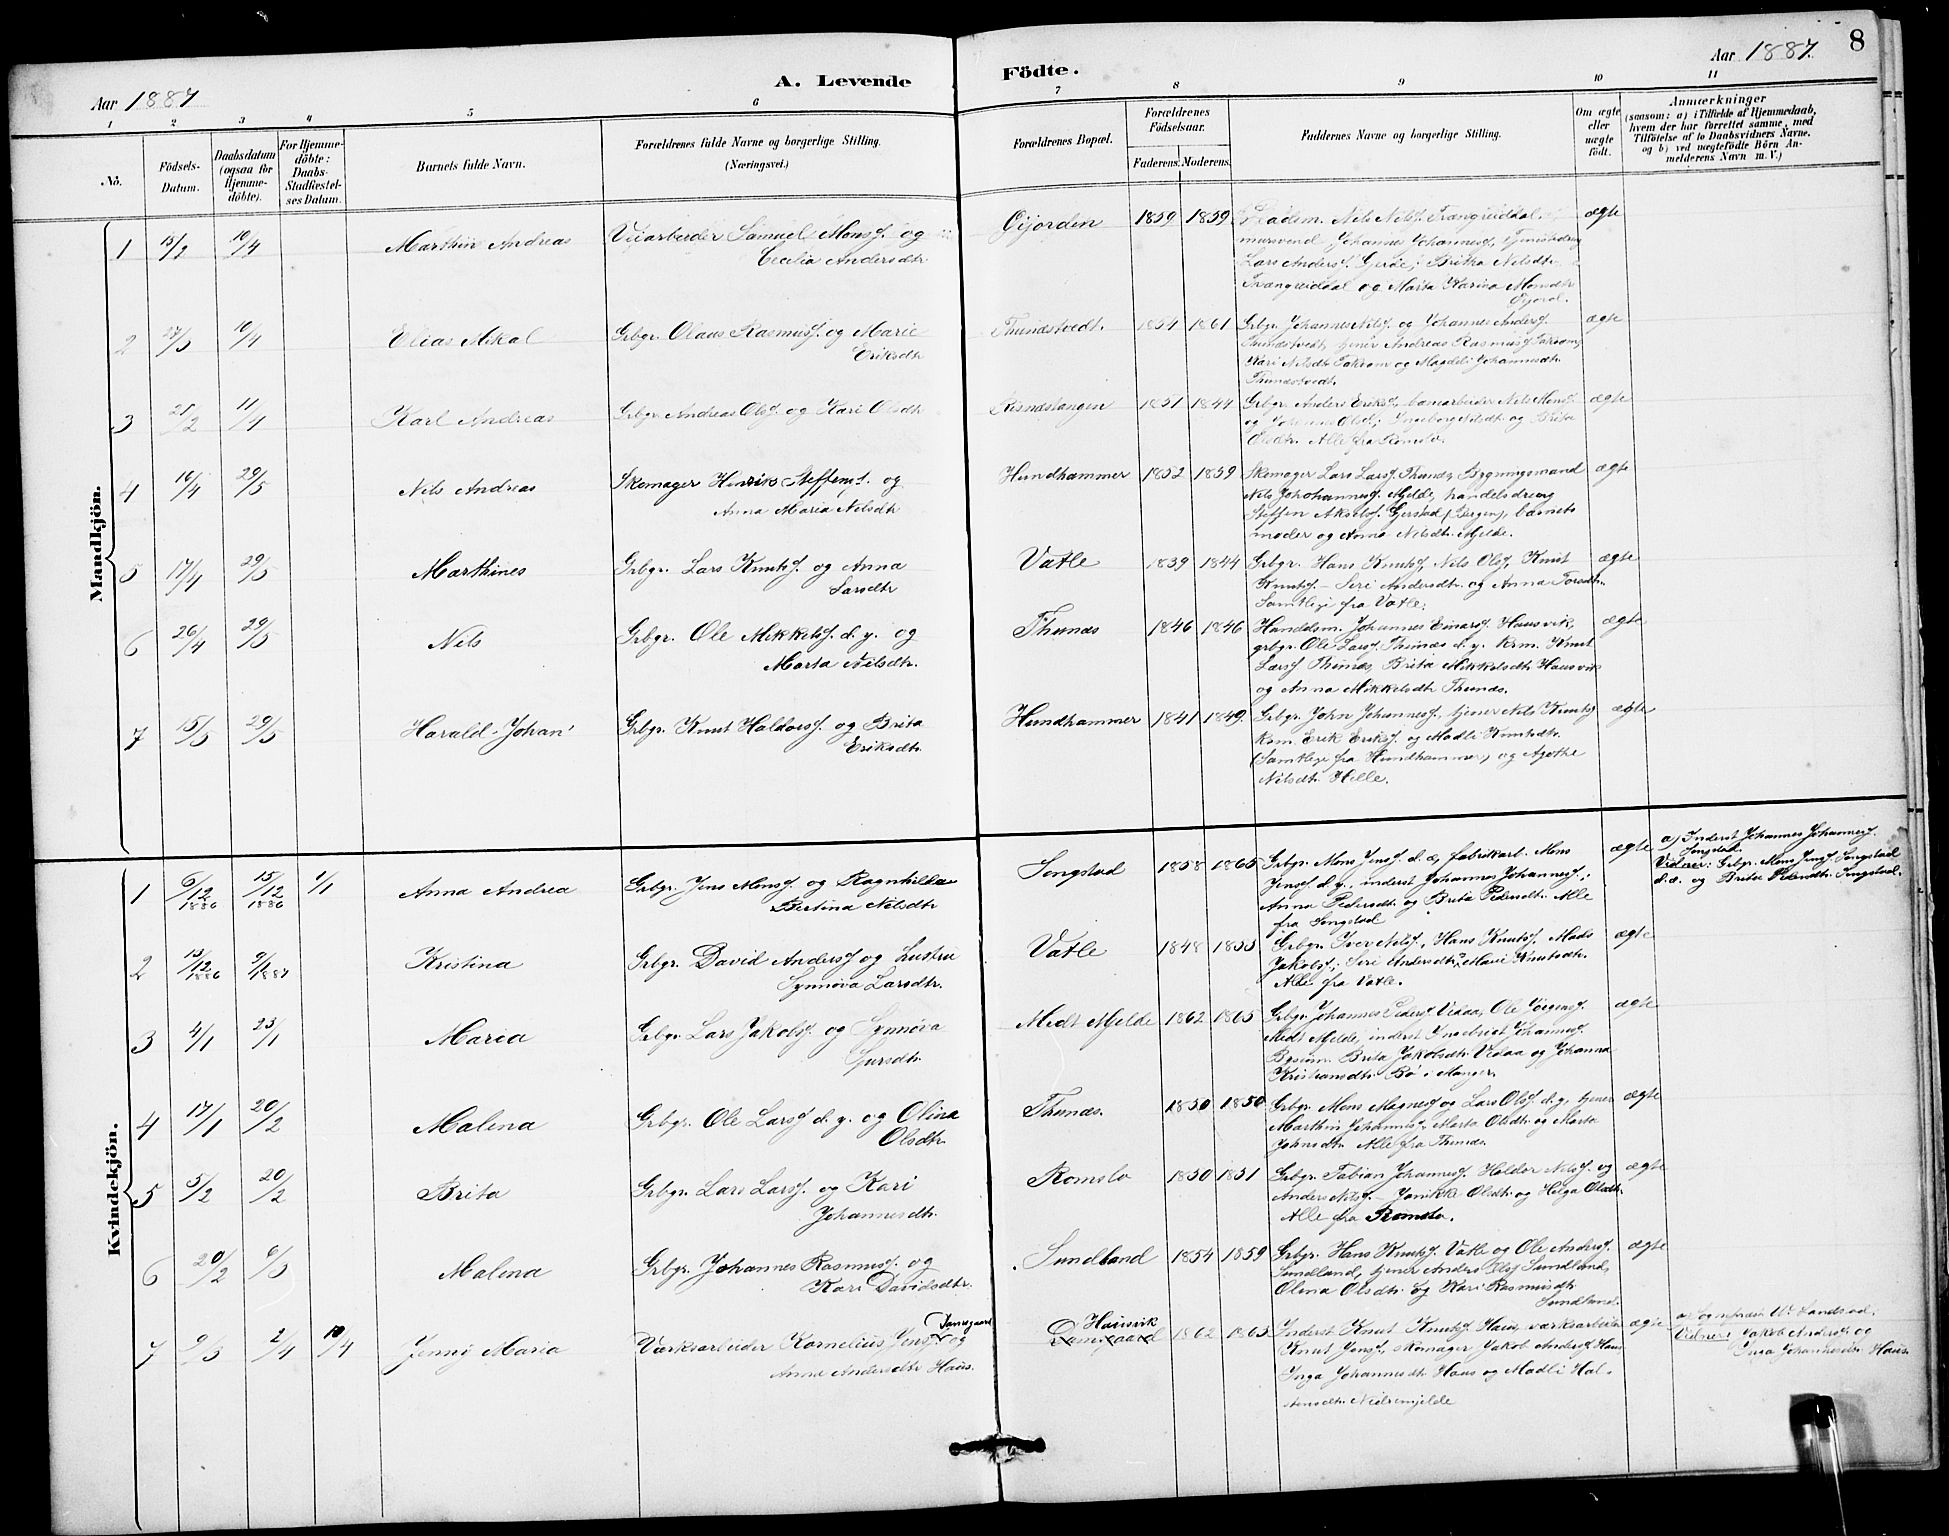 Aar 1887
A. Levende
Födte.
Aar 1887.
8
1 2 3 4 5 6 7 8 9 10 11
No.
Födsels-
Datum.
Daabsdatum
(ogsaa for
Hjemme-
döbte).
For Hjemme-
döbte:
Daabs-
Stadfæstel-
ses Datum.
Barnets fulde Navn.
Forældrenes fulde Navne og borgerlige Stilling.
(Næringsvei.)
Forældrenes Bopæl.
Forældrenes
Födselsaar.
Faderens. Moderens.
Faddernes Navne og borgerlige Stilling.
Om ægte
eller
uægte
født.
Anmærkninger
(saasom: a) i Tilfælde af Hjemmedaab,
hvem der har forrettet samme, med
Tilföielse af to Daabsvidners Navne.
og b) ved uægtefödte Börn An-
melderens Navn m. V.)
Mandkjön.
1 15/2 10/4 Marthin Andreas Veiarbeider Samuel Monsf. og
Cecilia Andersdtr
Gjorden 1859 1859
Nels Nelsf. Trangreiddal
Johannes Johannesf.
Lars Andersf. Gjerde; Britha Nelsdtr
Trangreiddal og Marta Karina Monsdtr
ægte
2 27/3 10/4 Elias Mikal Grbgr. Olaus Rasmusf. og Marie
Eriksdtr
Thundstvedt. 1854 1861 Grbgr. Johannes Nilsf. og Johannes Andersf.
Thundstvedt, tjener Andreas Rasmusf.
Kari Nilsdtr og Magdeli Johannesdtr
Thundstvedt.
ægte
3 21/2 11/4 Karl Andreas Grbgr. Andreas Olsf. og Kari Olsdtr
1851 1844 Grbgr. Anders Eriksf., banearbeider Nels Monsf.
og Johannes Olsf.; Ingeborg Nilsdtr og Brita
Olsdtr. Alle fra Romslo.
ægte
4 16/4 29/5 Nils Andreas Skomager Henrik Steffensf. og
Anna Maria Nilsdtr
Hundhammer 1852 1859 Skomager Lars Larsf. Thunæs, Bygningsmand
Nils Johannesf. Mjelde, handelsdreng
Steffen Akselsf. Gjerstad (Bergen), barnets
moder og Anna Nilsdtr. Mjelde.
ægte
5 17/4 29/5 Marthines Grbgr. Lars Knutsf. og Anna
Larsdtr
Vatle 1839 1844 Grbgr. Hans Knutsf, Nils Olsf, Knut
Knutsf. — Siri Andersdtr. og Anna
Samtlige fra Vatle.
ægte
6 26/4 29/5 Nels Grbgr. Ole Mikkelsf. d. y. og
Marta Nilsdtr.
Thunæs 1846 1846 Handelsm. Johannes Einarsf. Hausvik,
grbgr. Ole Larsf. Thunæs d. y. ksm. Knut
Larsf Thunæs, Brita Mikkelsdtr Hausvik
og Anna Mikkelsdtr Thunæs.
ægte
7 15/5 29/5 Harald Johan Grbgr. Knut Haldorsf. og Brita
Eriksdtr.
Hundhammer 1841 1849. Grbgr. John Johannesf., tjener Nils Knutsf
ksm. Erik Eriksf. og Madli Knutsdtr.
(Samtlige fra Hundhammer) og Agathe
Nilsdtr Helle.
ægte
Kvindekjön.
1 6/12 1886 15/12 1886 1/1 Anna Andrea Grbgr. Jens Monsf. og Ragnhilda
Bertina Nilsdtr
Songstad 1858 1865 Grbgr. Mons Jensf. d. æ, fabrikarb. Mons
Jensf. d. y. inderst Johannes Johannesf.;
Anna Pedersdtr. og Brita Pedersdtr. Alle
fra Songstad
ægte
a) Inderst Johannes Johannesf.
Songstad.
Vidner: Grbgr. Mons Jensf Songstad
d. æ. og Brita Pedersdtr. Songstad.
2 13/12 1886 9/1 1887 Kristina Grbgr. David Andersf og hustru
Synnøva Larsdtr.
Vatle 1848 1855 Grbgr. Iver Nilsf., Hans Knutsf, Mads
Jakobsf.; Siri Andersdtr, Mari Knutsdtr.
Alle fra Vatle.
ægte
3 4/1 23/1 Maria Grbgr. Lars Jakobsf. og Synnøva
Sjursdtr.
Medt Mjelde 1862 1865 Grbgr. Johannes Pedersf Vidaa, Ole Jørgensf.
Medt Mjelde, inderst Ingebrigt Johannesf.
Brita Jakobsdtr Vidaa og Johanna
Kristiansdtr. Bø i Manger.
ægte
4 17/1 20/2 Malena Grbgr. Ole Larsf d. y. og Olina
Olsdtr.
Thunæs. 1850 1850 Grbgr. Mons Magnesf og Lars Olsf. d. y. tjener
Marthin Johannesf., Marta Olsdtr og Marta
Johnsdtr. Alle fra Thunæs.
ægte
5 5/2 20/2 Brita Grbgr. Lars Larsf. og Kari
Johannesdtr.
Romslo 1850 1851 Grbgr. Fabian Johannesf. Haldor Nilsf. og
Anders Nilsf. — Janikke Olsdtr. og Helga Olsdtr.
Alle fra Romslo.
ægte
6 20/2 6/3 Malena Grbgr. Johannes Rasmusf. og
Kari Davidsdtr.
Sundland 1854 1859 Grbgr. Hans Knutsf. Vatle og Ole Andersf.
Sundland, tjener Anders Olsf Sundland,
Olina Olsdtr. og Kari Rasmusdtr.
Sundland.
ægte
7 9/3 2/4 10/4 Jenny Maria Værksarbeider Kornelius Jensf. Damsgaard og
Anna Andersdtr Haus.
Hausvik
Damsgaard 1862 1863 Inderst Knut Knutsf. Haus, værksarbeider
Knut Jensf., skomager Jakob Andersf Haus
Inga Johannesdtr. Haus og Madli Hal-
Nedremjelde
ægte
a) Sognepræst W. Landstad.
Vidner: Jakob Andersf og
Inga Johannesdtr. Haus.